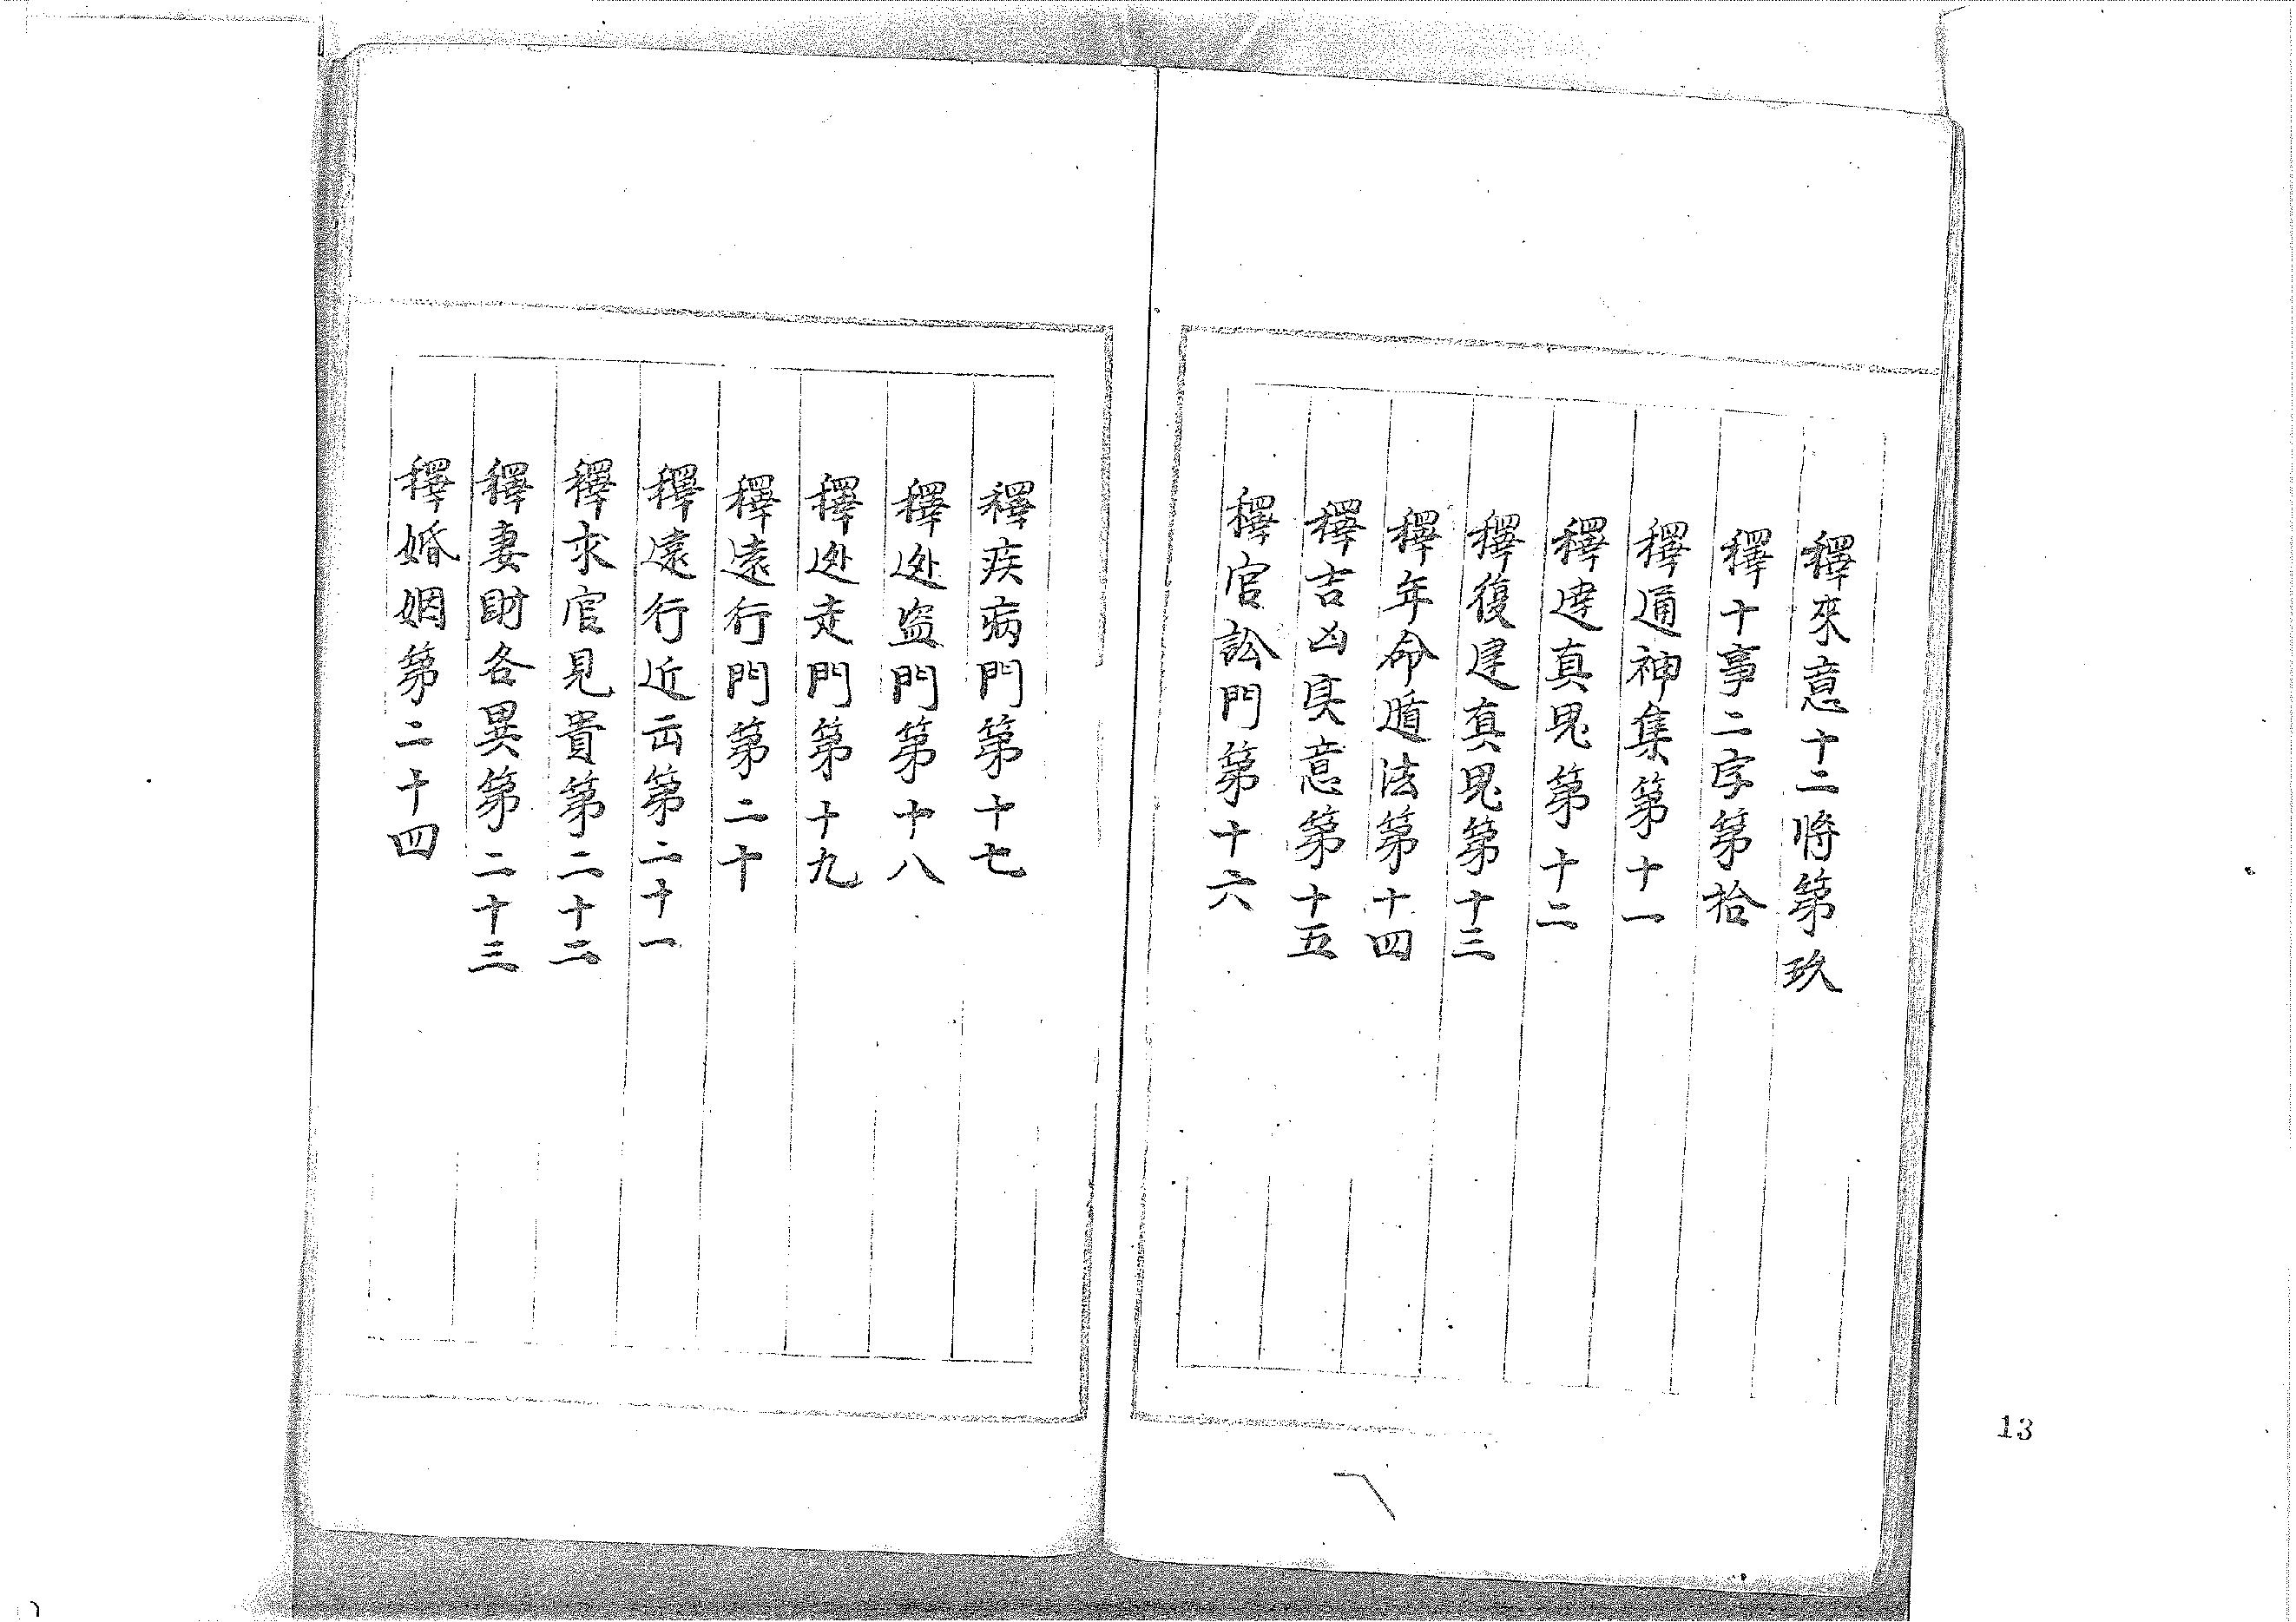 釋來意十二將第玖
釋十事二字第拾
釋通神集第十一
釋達真鬼第十二
釋復建真鬼第十三
釋年命遁法第十四
釋吉凶真意第十五
釋官訟門第十六
釋疾病門第十七
釋逃盜門第十八
釋逃走門第十九
釋遠行門第二十
釋遠行近云第二十一
釋求官見貴第二十二
釋妻財各異第二十三
釋婚姻第二十四
13